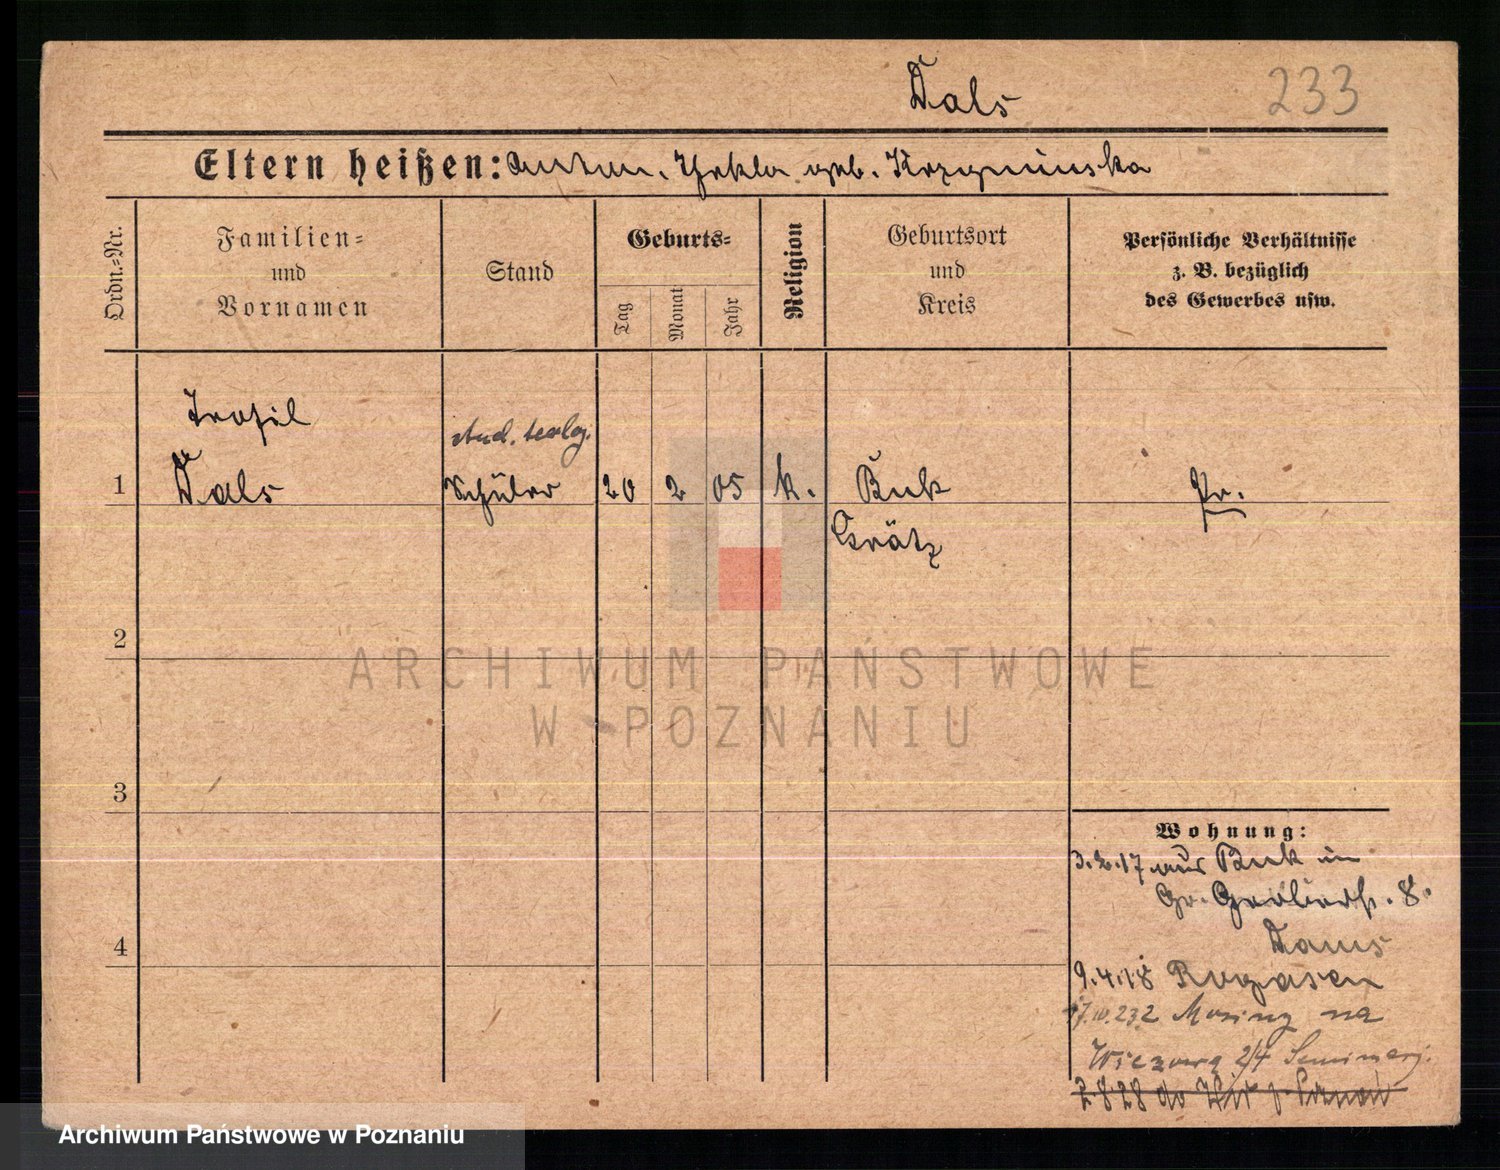 Dals 233
Eltern heißen: Anton. Thekla geb. Krzyminska
Ordn.=Nr.
Familien=
und
Vornamen
Stand
Geburts=
Tag
Monat
Jahr
Religion
Geburtsort
und
Kreis
Persönliche Verhältnisse
z. B. bezüglich
des Gewerbes usw.
Trofil
stud. teolog.
1 Dals Schüler 20 2 05 k. Buk Pr.
Grätz
2
3
4
Wohnung:
3.2.17 aus Buk in
Gr. Gerberstr. 8.
9.4.18 Rogasen
na
2/4
2.8.28 do
ARCHIWUM PAŃSTWOWE
W POZNANIU
Archiwum Państwowe w Poznaniu